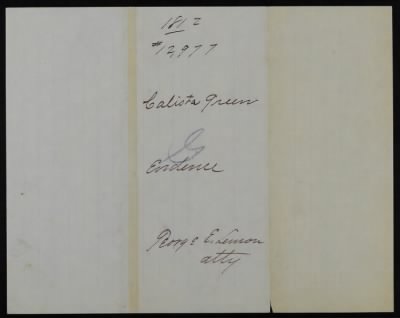 1812
#12,977
Calista Green
Evidence
George E. Lemon
atty